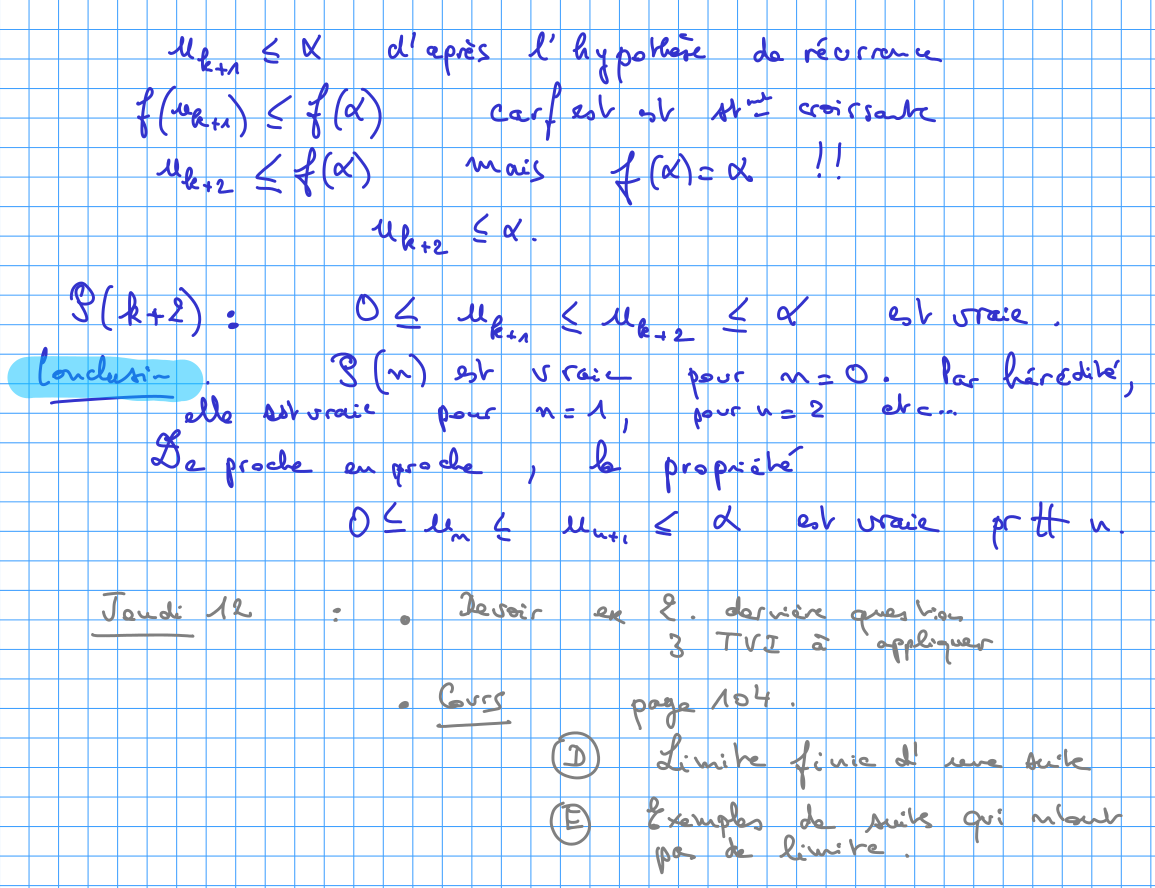 u_{k+1} ≤ α d'après l'hypothèse de récurrence
f(u_{k+1}) ≤ f(α) car f est est st^{mt} croissante
u_{k+2} ≤ f(α) mais f(α) = α !!
u_{k+2} ≤ α.
P(k+2) : 0 ≤ u_{k+1} ≤ u_{k+2} ≤ α est vraie.
Conclusion. P(n) est vraie pour n = 0. Par hérédité,
elle est vraie pour n = 1, pour n = 2 etc...
De proche en proche, la propriété
0 ≤ u_n ≤ u_{n+1} ≤ α est vraie pr tt n.
Jeudi 12 : • Devoir ex 2. dernière question
3 TVI à appliquer
• Cours page 104.
D Limite finie d'une suite
E Exemples de suites qui n'ont
pas de limite.